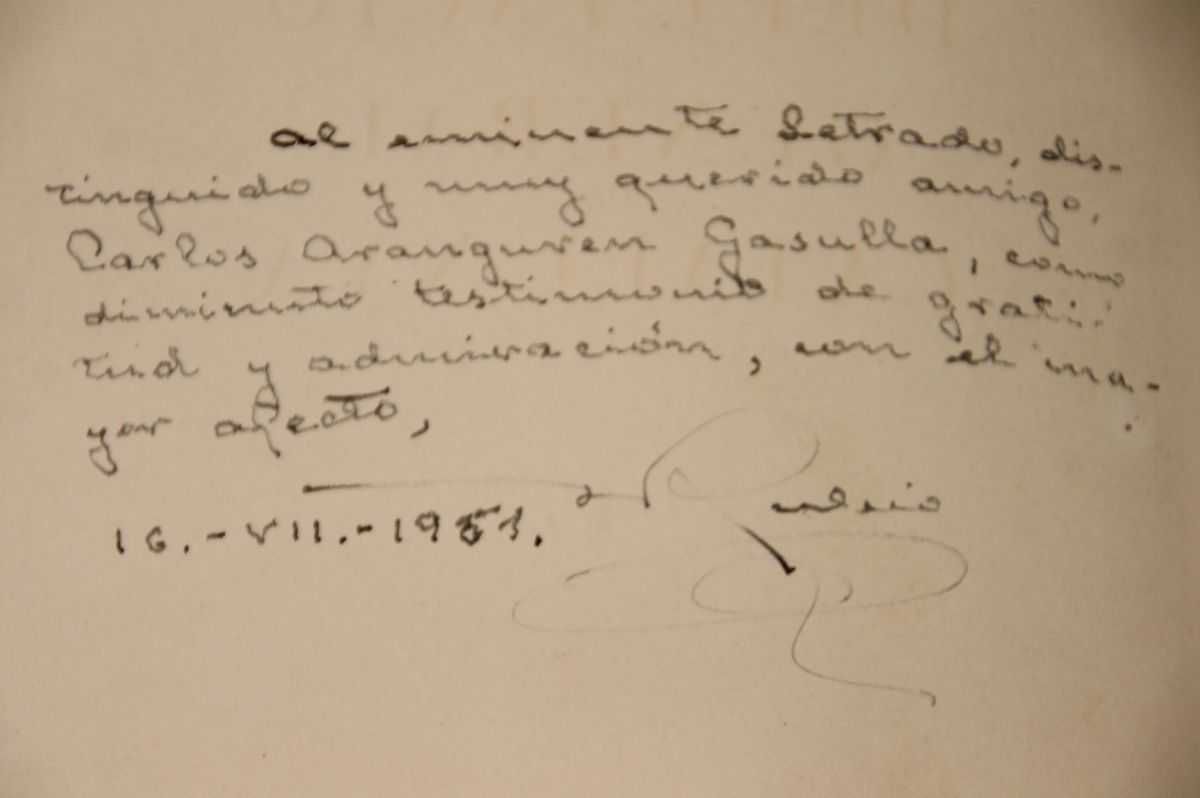 Al eminente Letrado, dis-
tinguido y muy querido amigo,
Carlos Aranguren Gasulla, como
diminuto testimonio de grati-
tud y admiración, con el ma-
yor afecto,
16.-VII.-1951.